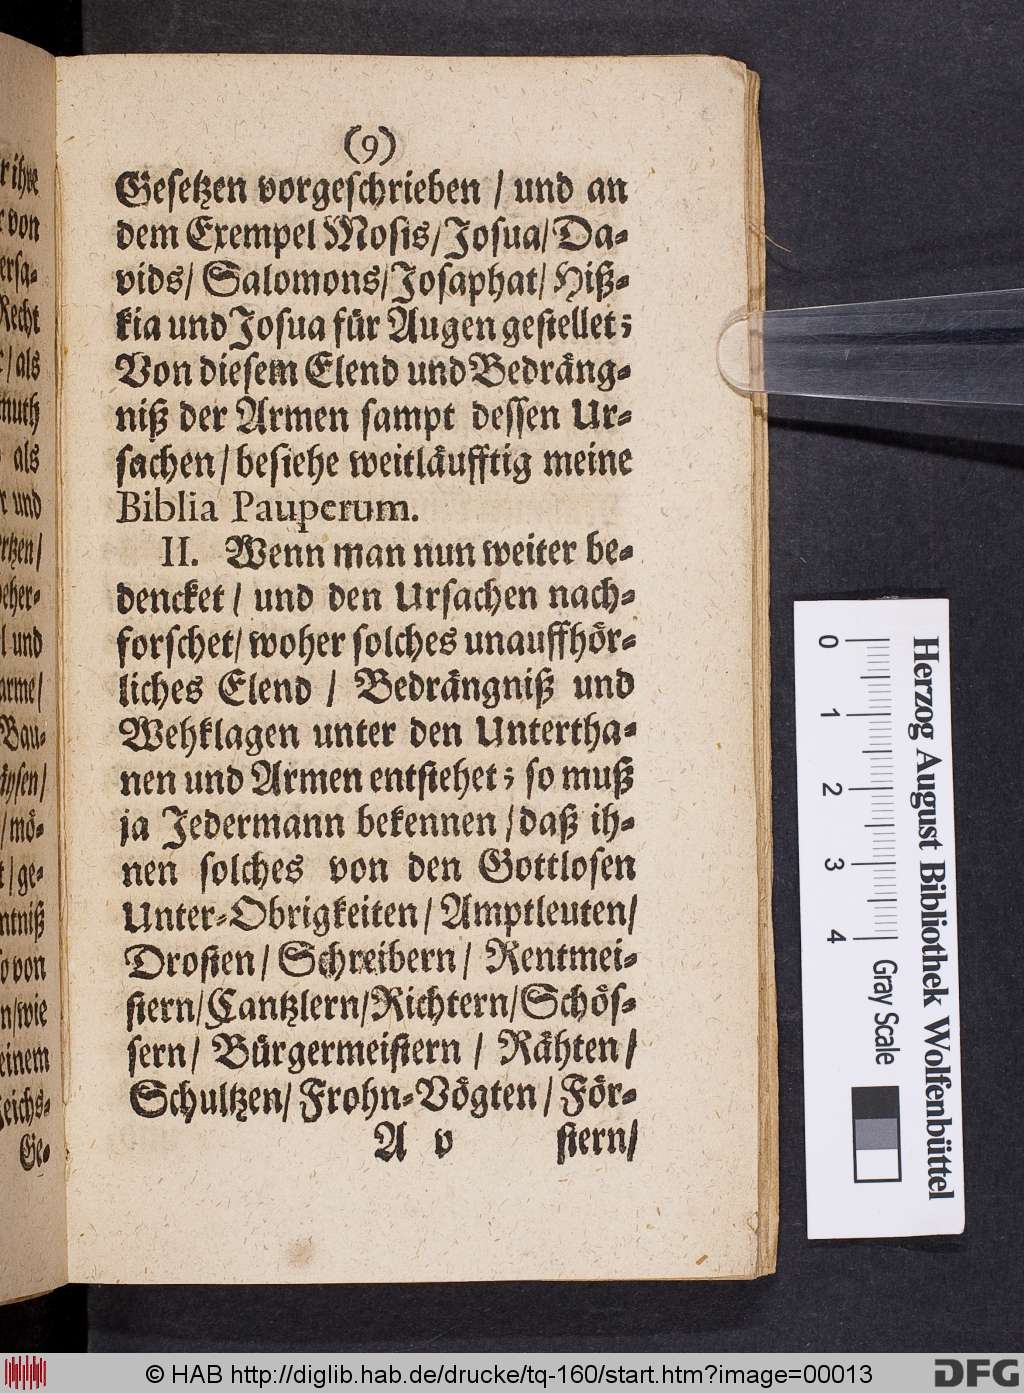 (9)
Gesetzen vorgeschrieben / und an
dem Exempel Mosis/ Josua/ Da-
vids/ Salomons/ Josaphat/ Hiß-
kia und Josua für Augen gestellet;
Von diesem Elend und Bedräng-
niß der Armen sampt dessen Ur-
sachen/ besiehe weitläufftig meine
Biblia Pauperum.
II. Wenn man nun weiter be-
dencket / und den Ursachen nach-
forschet/ woher solches unauffhör-
liches Elend / Bedrängniß und
Wehklagen unter den Untertha-
nen und Armen entstehet; so muß
ja Jedermann bekennen / daß ih-
nen solches von den Gottlosen
Unter-Obrigkeiten/ Amptleuten/
Drosten/ Schreibern/ Rentmei-
stern/ Cantzlern/ Richtern/ Schös-
sern/ Bürgermeistern / Rähten/
Schultzen/ Frohn-Vögten / För-
A v stern/
r ihre
von
ersa-
Recht
/ als
muth
als
und
rtzen/
eher-
l und
arme/
Bau-
/ mö-
t / ge-
ntniß
so von
n/ wie
einem
Reichs-
Ge-
0 1 2 3 4
Herzog August Bibliothek Wolfenbüttel
Gray Scale
© HAB http://diglib.hab.de/drucke/tq-160/start.htm?image=00013
DFG